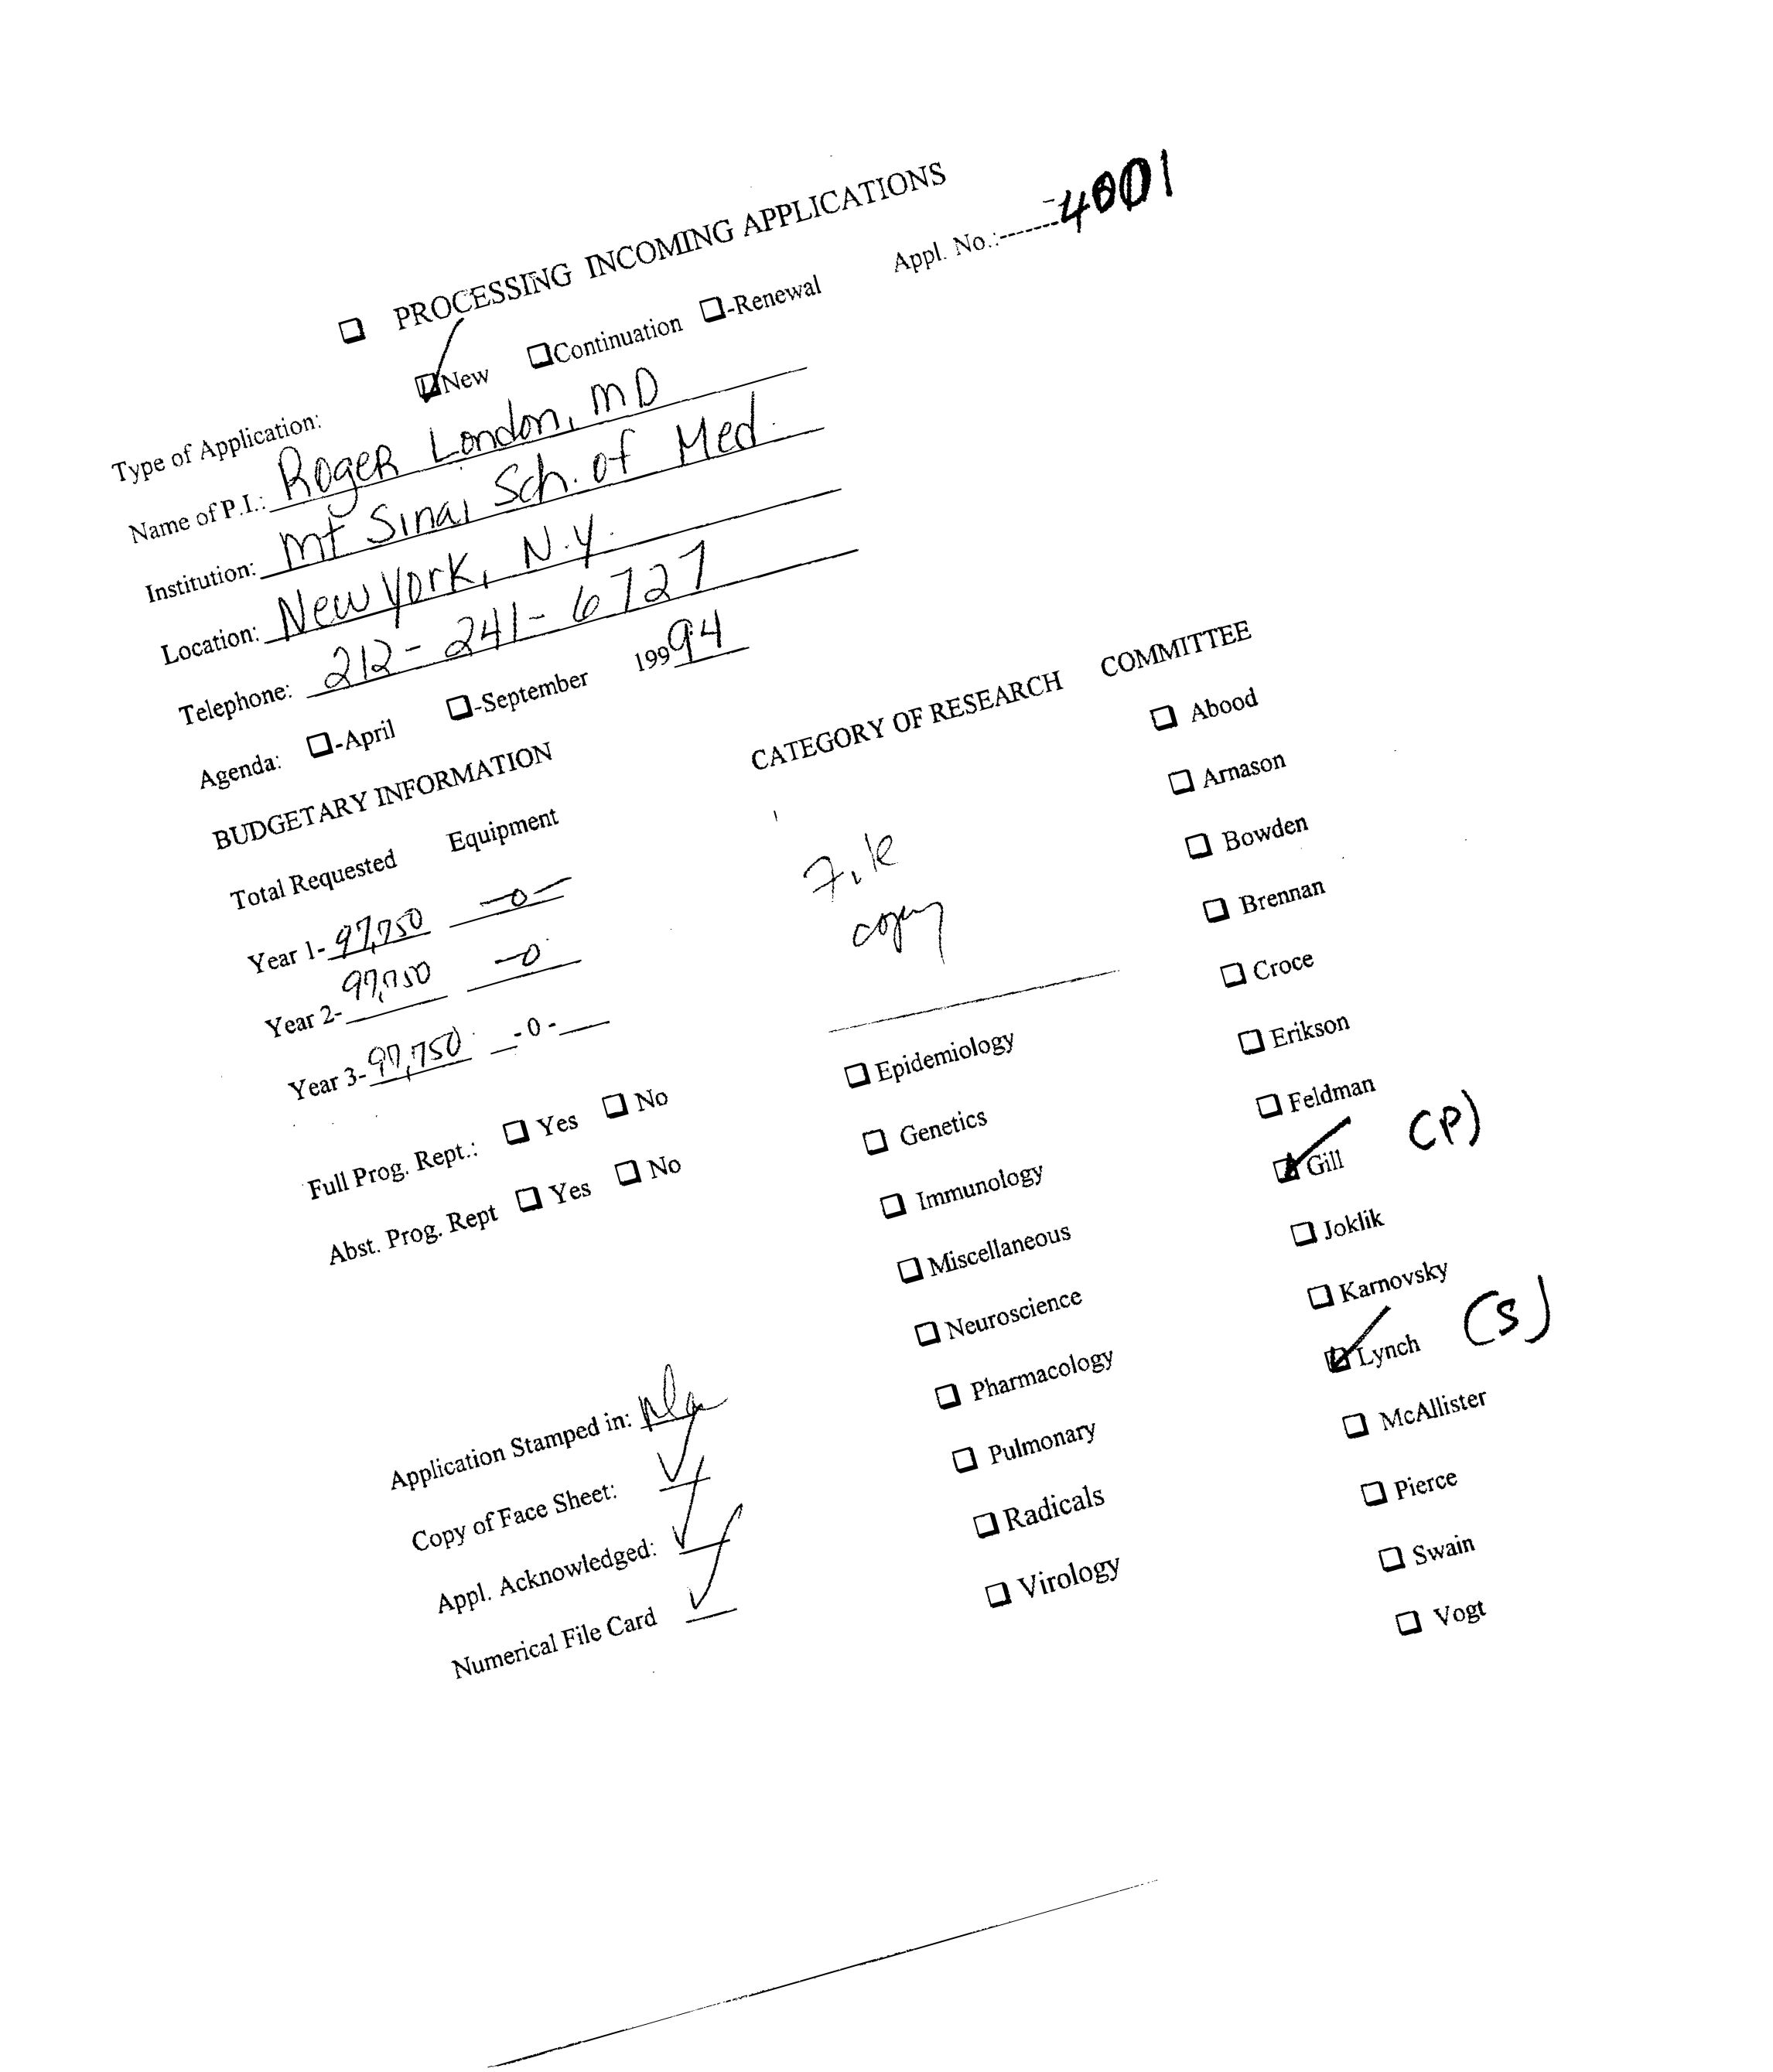 ❑ PROCESSING INCOMING APPLICATIONS
Appl. No.:--------4001
Type of Application: New ❑Continuation ❑-Renewal
Name of P.I.: Roger London, MD
Institution: Mt Sinai Sch. of Med.
Location: New York, N.Y.
Telephone: 212-241-6727
Agenda: ❑-April ❑-September 19994
BUDGETARY INFORMATION
Total Requested Equipment
Year 1- 97,750 -0-
Year 2- 97,750 -0
Year 3- 97,750 -0-
Full Prog. Rept.: ❑ Yes ❑ No
Abst. Prog. Rept ❑ Yes ❑ No
Application Stamped in:
Copy of Face Sheet: ✓
Appl. Acknowledged: ✓
Numerical File Card ✓
CATEGORY OF RESEARCH
File
copy
❑ Epidemiology
❑ Genetics
❑ Immunology
❑ Miscellaneous
❑ Neuroscience
❑ Pharmacology
❑ Pulmonary
❑ Radicals
❑ Virology
COMMITTEE
❑ Abood
❑ Arnason
❑ Bowden
❑ Brennan
❑ Croce
❑ Erikson
❑ Feldman
✓ Gill (P)
❑ Joklik
❑ Karnovsky
✓ Lynch (S)
❑ McAllister
❑ Pierce
❑ Swain
❑ Vogt